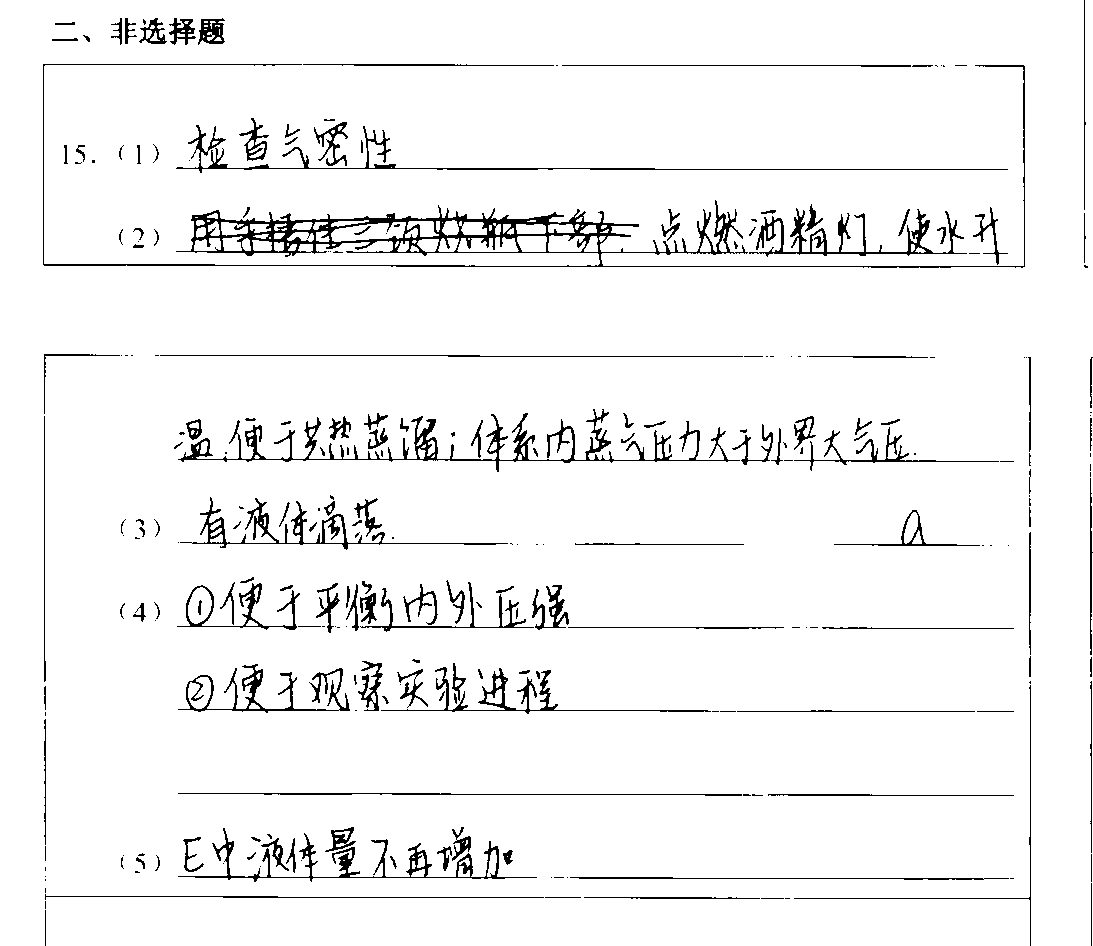 二、非选择题
15.（1）检查气密性
（2）用手捂住三颈烧瓶下部. 点燃酒精灯，使水升
温，便于共热蒸馏；体系内蒸气压力大于外界大气压.
（3）有液体滴落. a
（4）①便于平衡内外压强
②便于观察实验进程
（5）E中液体量不再增加